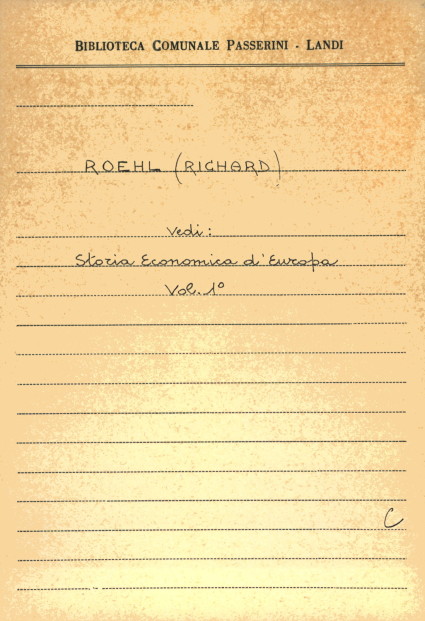 BIBLIOTECA COMUNALE PASSERINI - LANDI
ROEHL (RICHARD)
Vedi:
Storia Economica d'Europa
Vol. 1º
C